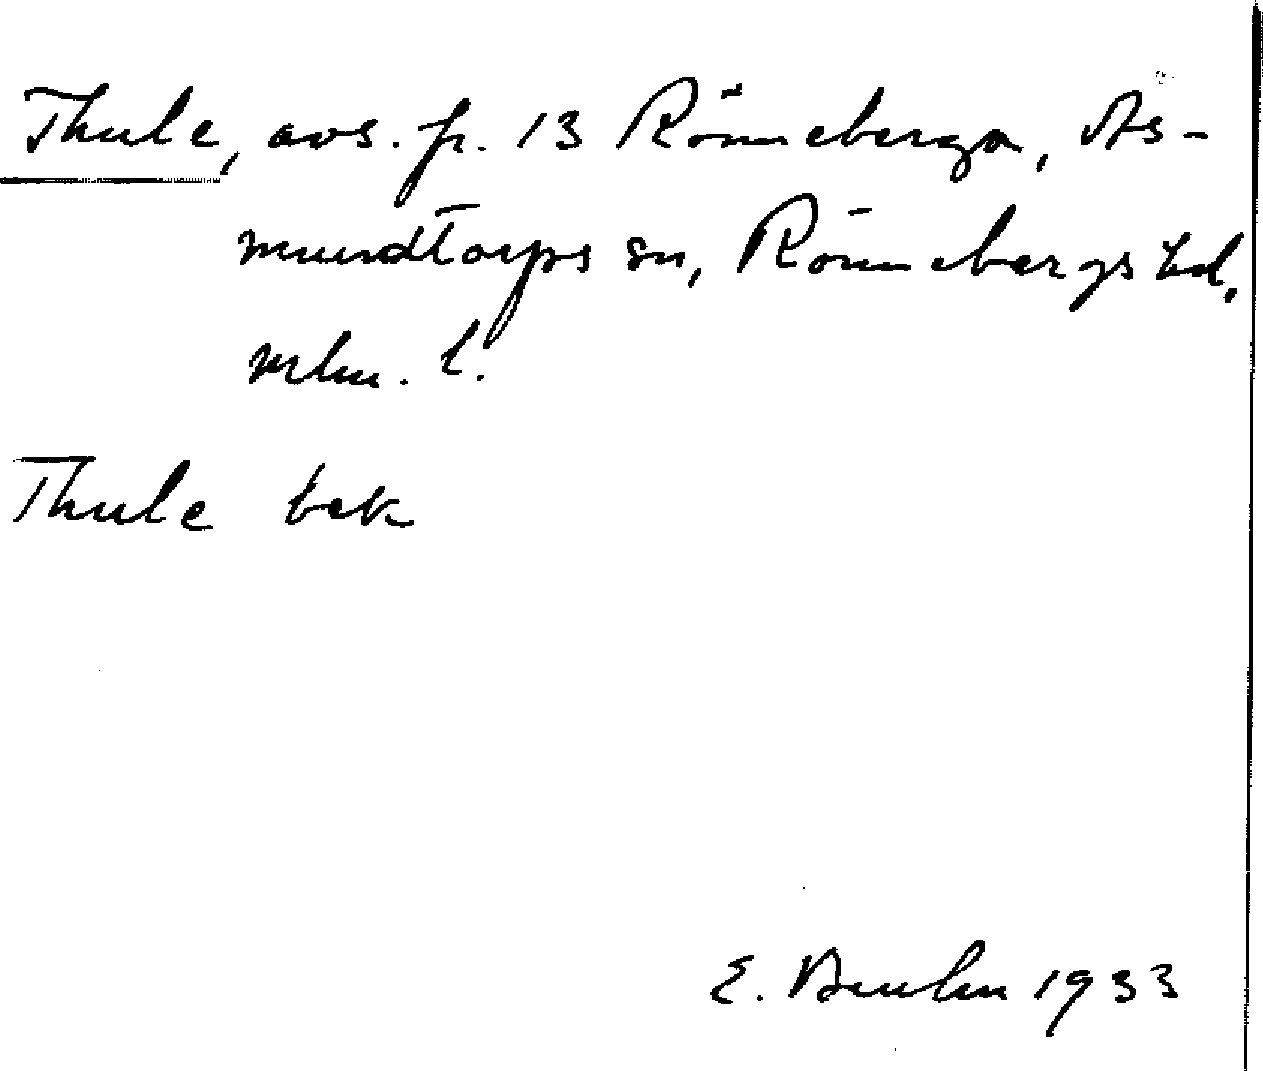 Thule, avs. fr. 13 Rönneberga, As-
mundtorps sn, Rönnebergs hd,
Mlm. l.
Thule bek
E. Bruhn 1933